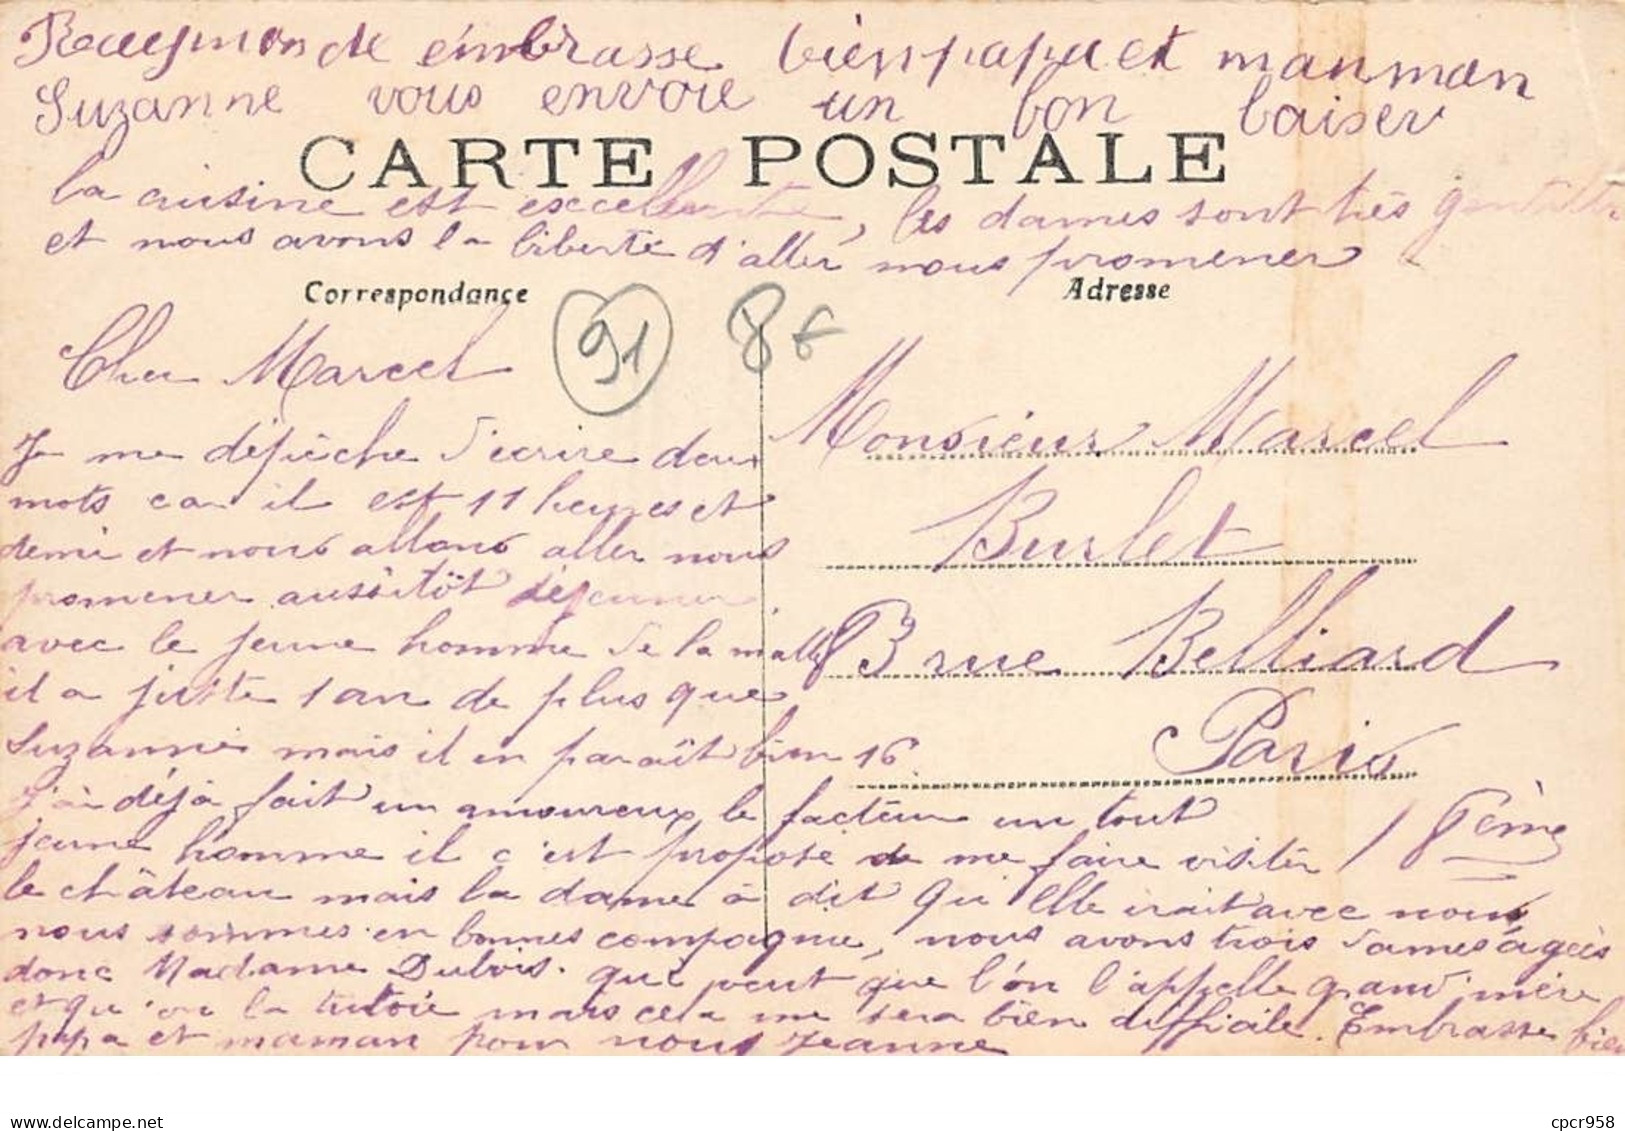 Raeymonde émbrasse bien papa et manman
Suzanne vous envoie un bon baiser
CARTE POSTALE
la cuisine est excellente, les dames sont très
et nous avons la liberté d'aller nous promener
Correspondance
Adresse
91
8€
Cher Marcel
Je me dépêche d'écrire deux
mots car il est 11 heures et
demi et nous allons aller nous
promener aussitôt déjeuner
avec le jeune homme de la malle
il a juste 1 an de plus que
Suzanne mais il en paraît bien 16
Monsieur Marcel
Burlet
83 rue Belliard
Paris
18ème
J'ai déjà fait un amoureux le facteur un tout
jeune homme il c'est proposé de me faire visiter
le château mais la dame à dit qu'elle irait avec nous
nous sommes en bonnes compagnie, nous avons trois dames âgées
donc Madame Dubois. qui veut que l'on l'appelle grand'mère
et qu'on la tutoie mais cela me sera bien difficile. Embrasse bien
papa et maman pour nous Jeanne
www.delcampe.net
cpcr958